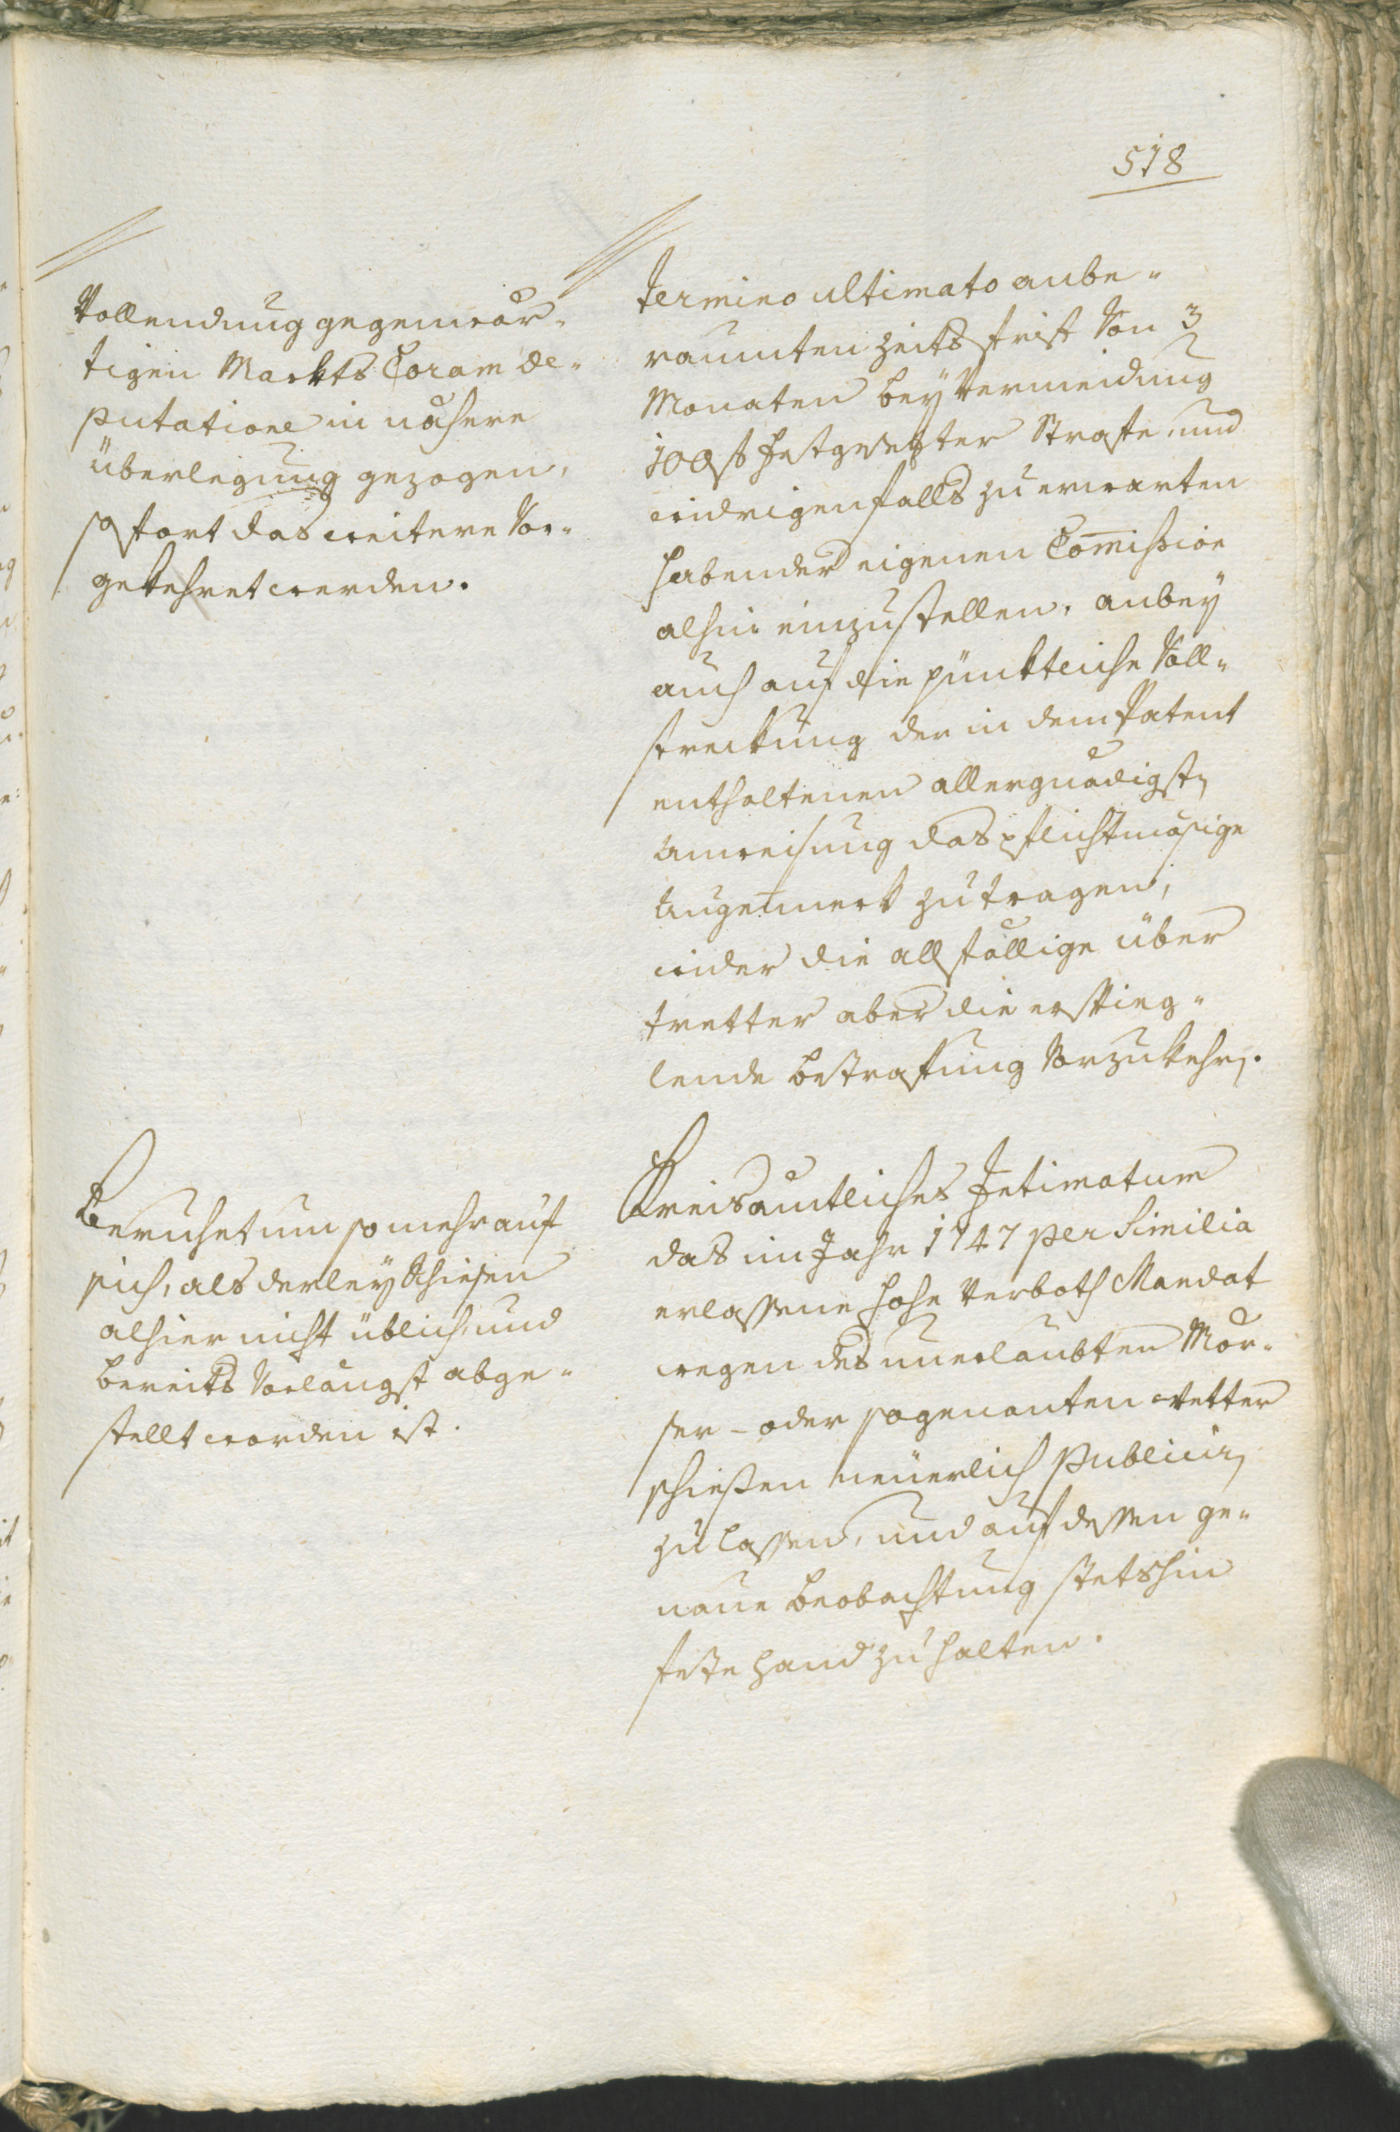 518
Vollendung gegenwär-
tigen Markts Coram de-
putatione in nähere
überlegung gezogen,
sofort das weitere Vor-
gekehret werden.
Termino ultimato anbe-
raumten Zeitsfrist Von 3
Monaten bey Vermeidung
festgesezter Strafe, und
widrigenfalls zu erwarten
habender eigenen Comission
alhin einzustellen, anbey
auch auf die pünktliche Voll-
streckung der in dem Patent
enthaltenen allergnädigsten
Anweisung das pflichtmäsige
Augenmerk zu tragen,
wider die allfällige über
tretter aber die erspieg-
lende bestrafung Vorzukehren.
Beruhet um so mehr auf
sich, als derley Schiesen
alhier nicht üblich, und
bereits Vorlängst abge-
stellt worden ist.
Kreisämtliches Intimatum
das im Jahr 1747 per Similia
erlassene hohe Verboth Mandat
wegen des unerlaubten Mör-
ser- oder sogenanten Wetter
schießen neuerlich Publiciren
zu lassen, und auf dessen ge-
naue beobachtung stetshin
feste Hand zu halten.